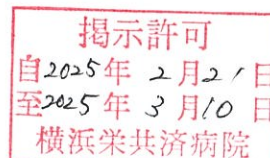 掲示許可
自2025年 2月21日
至2025年 3月10日
横浜栄共済病院